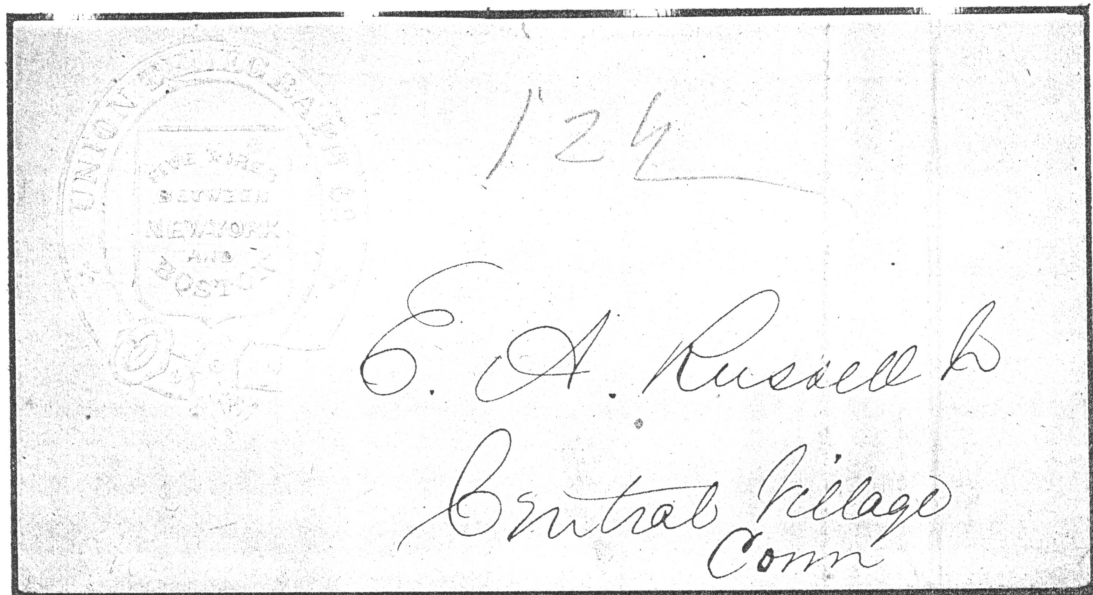 UNION TELEGRAPH
BETWEEN
NEW-YORK
AND
BOSTON
124
E. A. Russell
Central Village
Conn